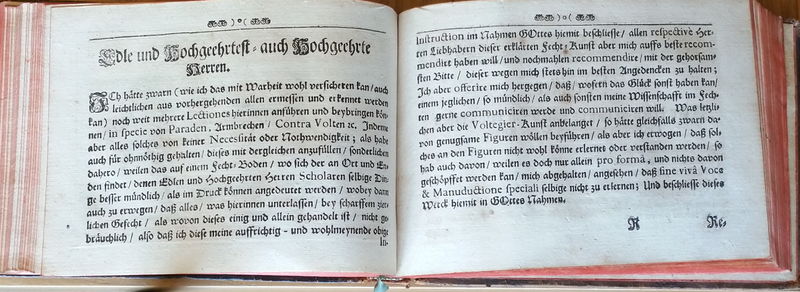 Edle und Hochgeehrtest- auch Hochgeehrte
Herren.
ICh hätte zwar (wie ich das mit Warheit wohl versichern kan/ auch
leichtlichen aus vorhergehenden allen ermessen und erkennet werden
kan) noch weit mehrere Lectiones hierinnen anführen und beybringen kön-
nen/ in specie von Paraden, Armbrechen/ Contra Volten ꝛc. Indeme
aber alles solches von keiner Necessität oder Nothwendigkeit; als habe
auch für ohnnöthig gehalten/ dieses mit dergleichen anzufüllen/ sonderlichen
dahero/ weilen das auf einem Fecht-Boden/ wo sich der an Ort und En-
den findet/ denen Edlen und Hochgeehrten Herren Scholaren selbige Din-
ge besser mündlich/ als im Druck können angedeutet werden/ wobey dann
auch zu erwegen/ daß alles/ was hierinnen unterlassen/ bey scharffem zier-
lichen Gefecht/ als wovon dieses einig und allein gehandelt ist/ nicht ge-
bräuchlich/ also daß ich diese meine auffrichtig- und wohlmeynende obige
In-
Instruction im Nahmen GOttes hiemit beschliesse/ allen respectivè Her-
ren Liebhabern dieser erklärten Fecht-Kunst aber mich auffs beste recom-
mendirt haben will/ und nochmahlen recommendire/ mit der gehorsam-
sten Bitte/ dieser wegen mich stets hin im besten Angedencken zu halten;
Ich aber offerire mich hergegen/ daß/ wofern das Glück sonst haben kan/
einem jeglichen/ so mündlich/ als auch sonsten meine Wissenschafft im Fech-
ten gerne communiciren werde und communiciren will. Was letzli-
chen aber die Voltegier-Kunst anbelanget/ so hätte gleichfalls zwarn da-
von genugsame Figuren wöllen beyführen/ als aber ich erwogen/ daß sol-
ches an den Figuren nicht wohl könne erlernet oder verstanden werden/ so
hab auch davon/ weilen es doch nur allein pro formâ, und nichts davon
geschöpffet werden kan/ mich abgehalten/ angesehen/ daß sine vivâ Voce
& Manuductione speciali selbige nicht zu erlernen; Und beschliesse dieses
Werck hiemit in GOttes Nahmen.
R Re-